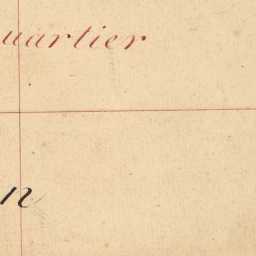 uartier
n